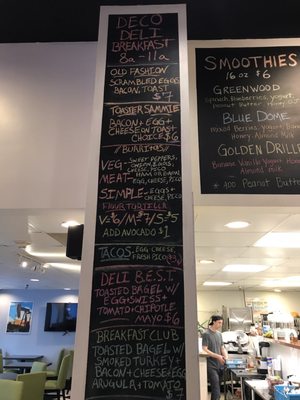 DECO
DELI
BREAKFAST
8a-11a
OLD FASHION
SCRAMBLED EGGS
BACON, TOAST
$7
TOASTER SAMMIE
BACON + EGG +
CHEESE ON TOAST
CHOICE $6
//BURRITOS//
VEG- SWEET PEPERS,
ONION, EGG,
CHEESE, PICO
MEAT- HAM OR BACON
EGG, CHEESE, PICO
SIMPLE- EGGS +
CHEESE + PICO
FLOUR TORTILLA
V-$6/M-$7/S-$5
ADD AVOCADO $1
TACOS- EGG CHEESE
FRESH PICO $2
DELI B.E.S.T.
TOASTED BAGEL W/
EGG + SWISS +
TOMATO + CHIPOTLE
MAYO $6
BREAKFAST CLUB
TOASTED BAGEL W/
SMOKED TURKEY +
BACON + CHEESE + EGG
ARUGULA + TOMATO
SMOOTHIES
16 oz $6
GREENWOOD
Spinach, Berries, yogurt,
Peanut Butter, Honey
BLUE DOME
Mixed Berries, Yogurt,
Honey Almond Milk
GOLDEN DRILL
Banana Vanilla Yogurt,
Honey, Almond Milk
Peanut Butter